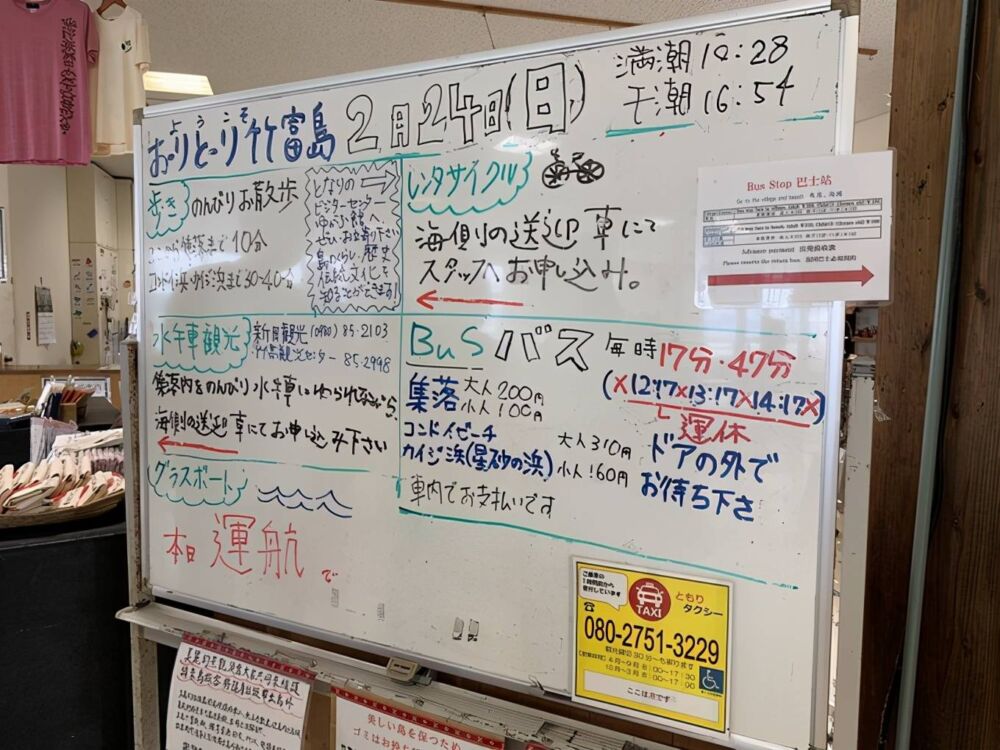 ようこそ
おーりとーり竹富島
2月24日(日)
満潮10:28
干潮16:54
歩き
のんびりお散歩
ここから集落まで10分
コンドイ浜・カイジ浜まで30~40分
となりの
ビジターセンター
ゆがふ館へ
ぜひお立寄り下さい
島のくらし・歴史
伝統文化を
知ることができます!
レンタサイクル
海側の送迎車にて
スタッフへお申し込み。
Bus Stop 巴士站
Advance payment
Please reserve the return bus.
水牛車観光
新田観光(0980)85-2103
竹富観光センター 85-2998
集落内をのんびり水牛車にゆられながら、
海側の送迎車にてお申し込み下さい
BuS バス
毎時17分・47分
(×12:17×13:17×14:17×)
運休
集落 大人200円
小人100円
コンドイビーチ
カイジ浜(星砂の浜)
大人310円
小人160円
ドアの外で
お待ち下さ
車内でお支払いです
グラスボート
本日運航で
TAXI
ともり
タクシー
080-2751-3229
4月~9月 8:00~17:30
10月~3月 8:00~17:00
美しい島を保つため
ゴミはお持ち